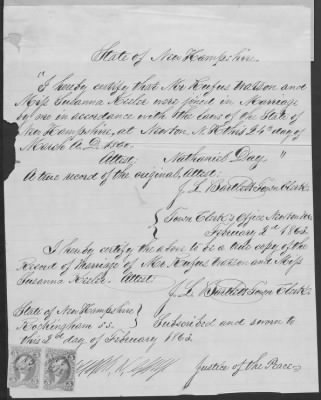 State of New Hampshire.
"I hereby certify that Mr Rufus Watson and
Miss Susanna Keeler were joined in Marriage
by me in accordance with the laws of the State of
New Hampshire, at Newton N.H. this 24th day of
March A.D. 1860.
Attest, Nathaniel Day "
A true record of the original, Attest:
J. L. Bartlett Town Clerk
Town Clerk's Office Newton
February 2d 1865.
I hereby certify the above to be a true copy of the
Record of Marriage of Mr Rufus Watson and Miss
Susanna Keeler. Attest
J. L. Bartlett Town Clerk
State of New Hampshire
Rockingham ss. Subscribed and sworn to
this 2d day of February 1865.
Justice of the Peace